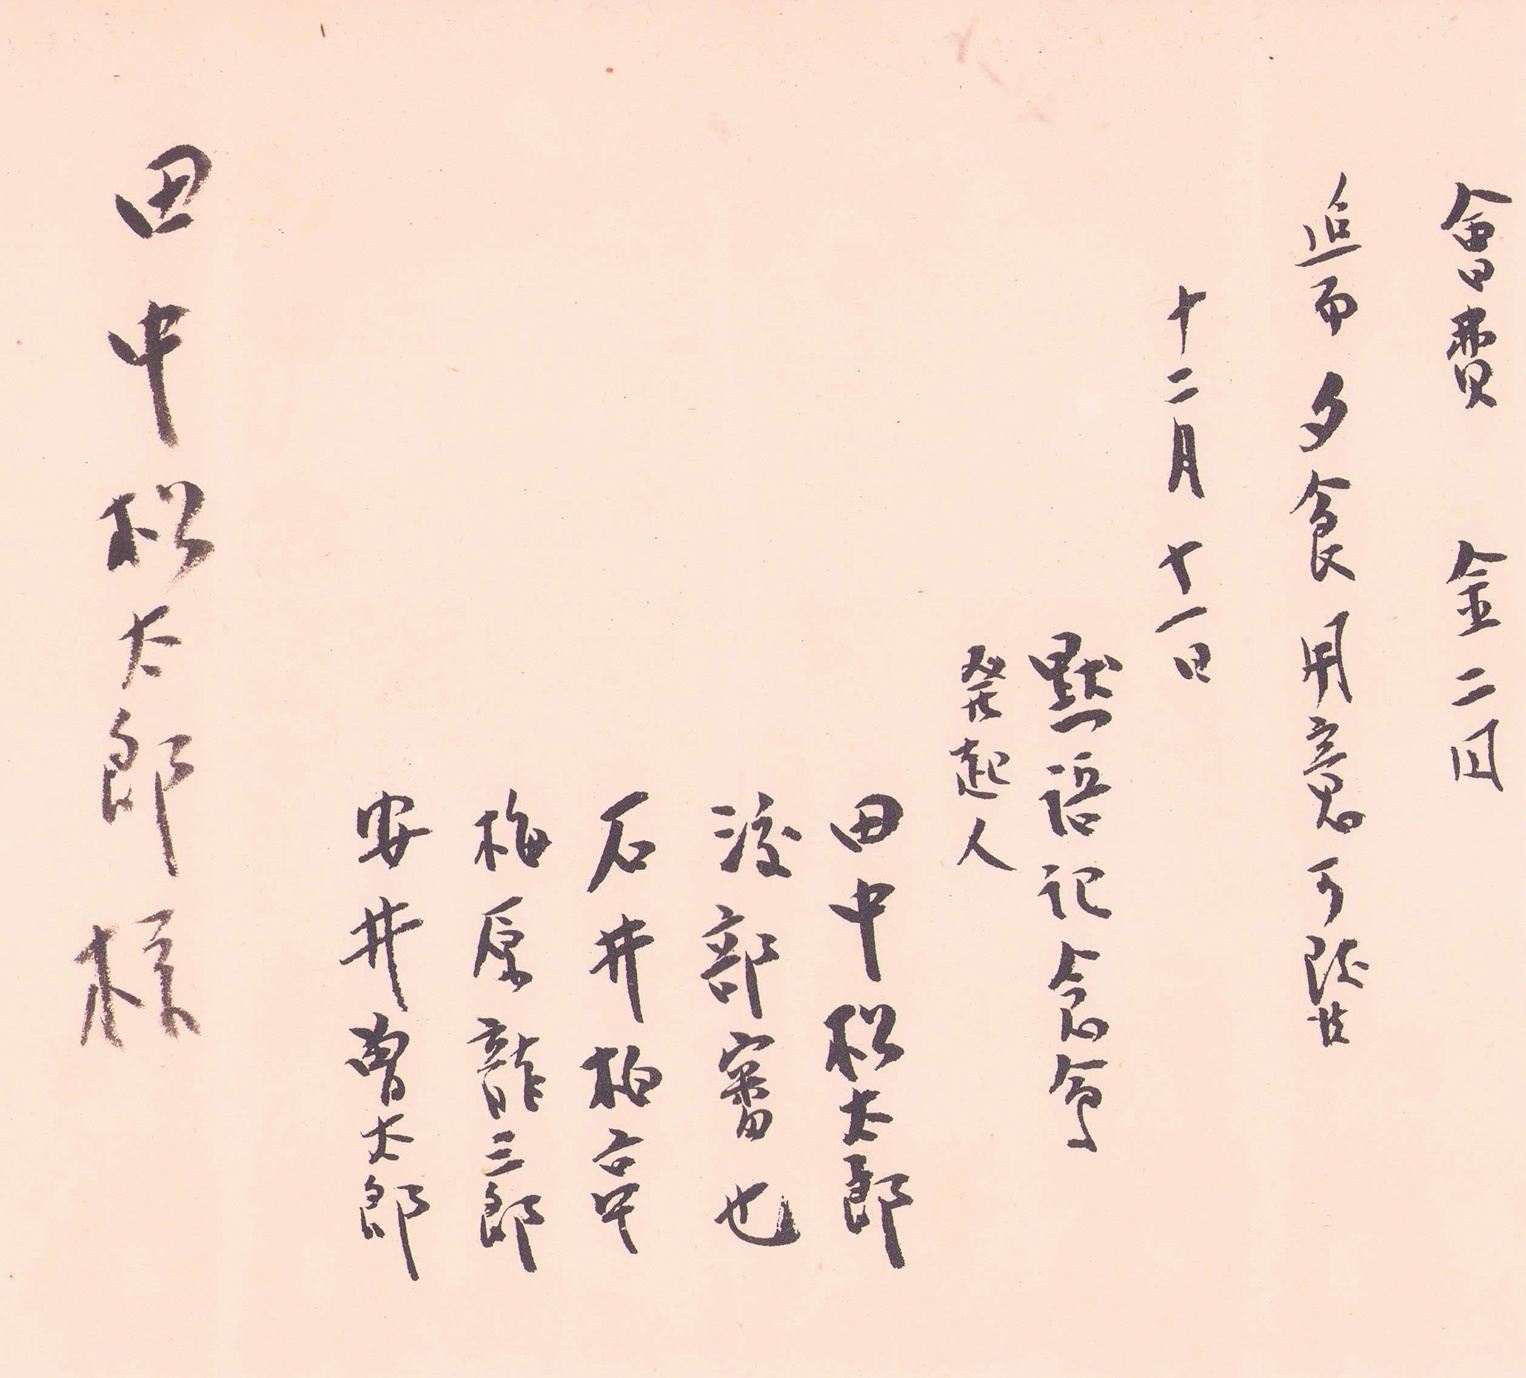 會費 金二円
追而夕食用意可致候
十二月十一日
黙語記念會
発起人
田中松太郎
渡部審也
石井柏亭
梅原龍三郎
安井曽太郎
田中松太郎様